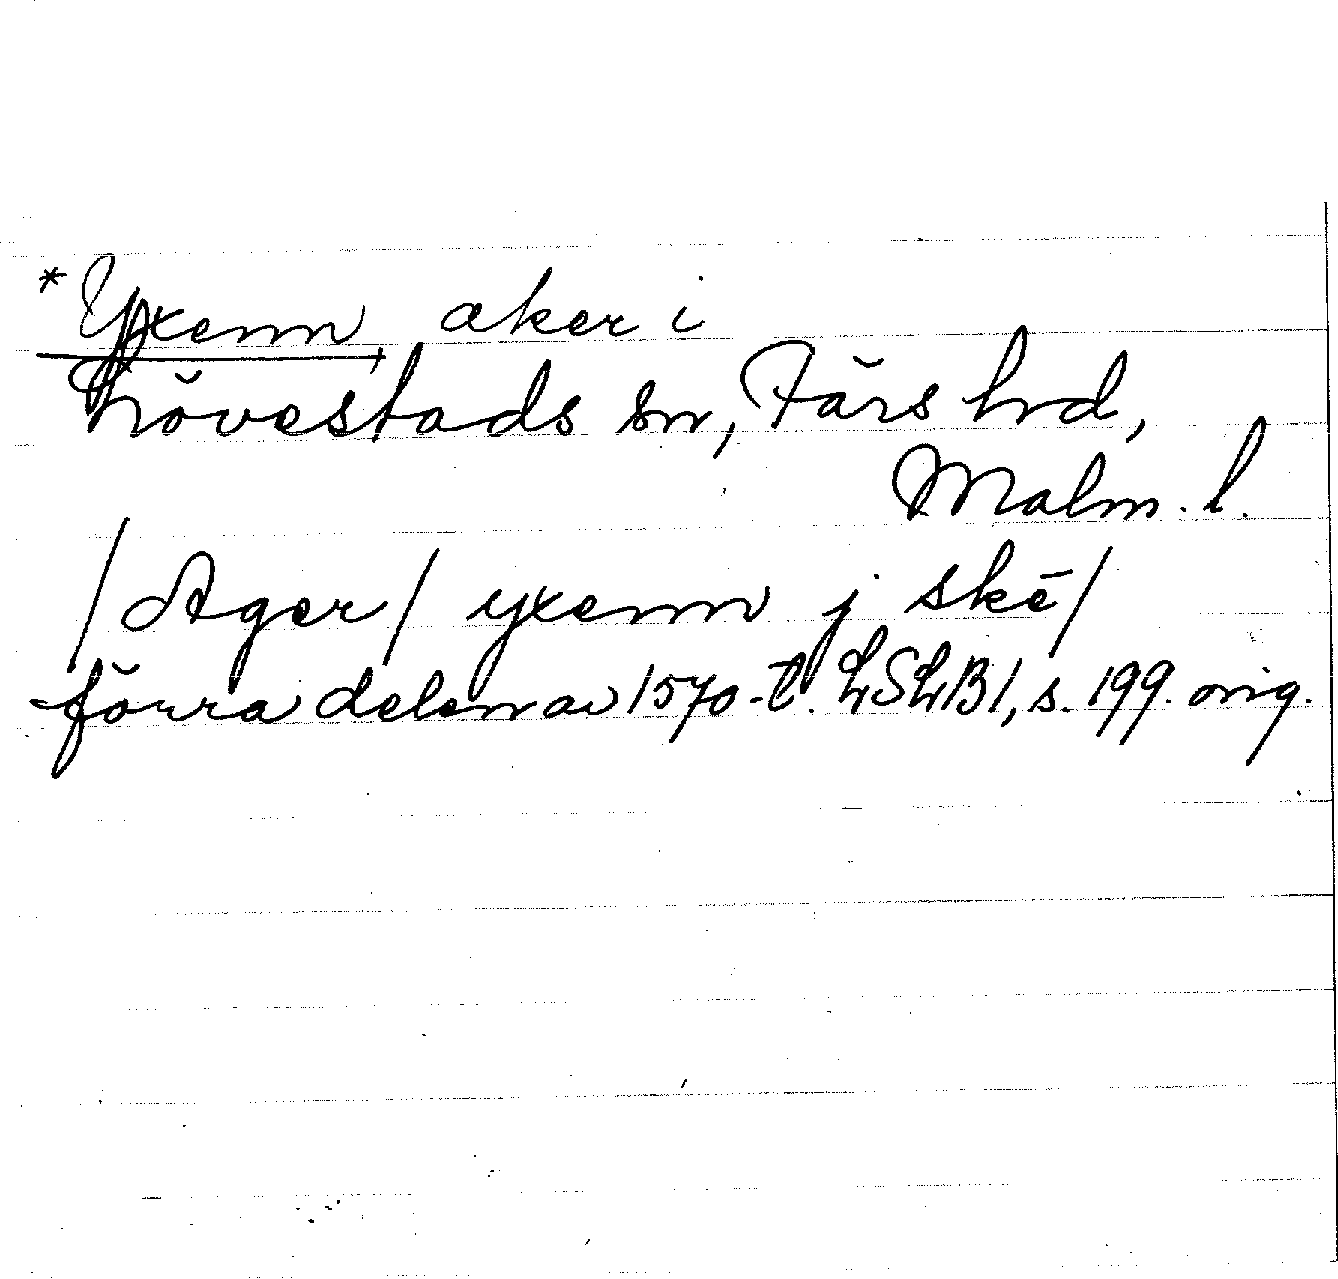 *Yxenn, aker i
Lövestads sn, Färs hrd,
Malm. l.
/Ager/ yxenn j skē/
förra delen av 1570-t. LSLB1, s. 199. orig.